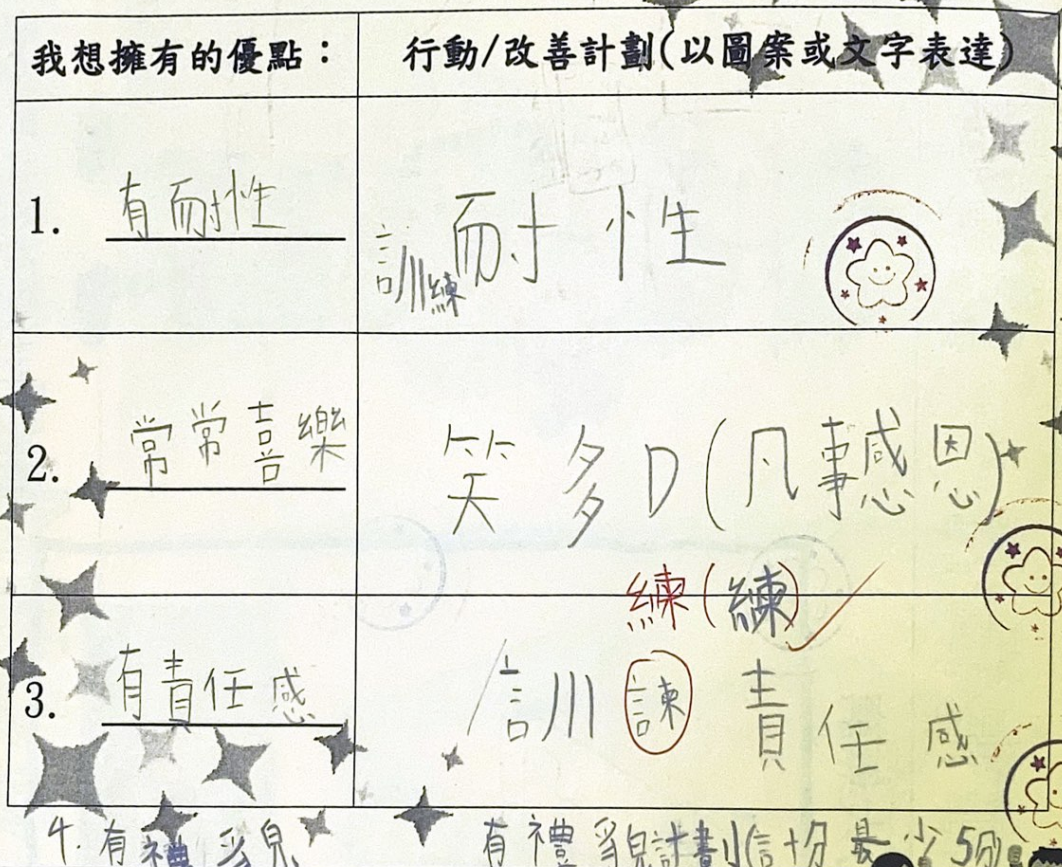 我想擁有的優點：
行動/改善計劃(以圖案或文字表達)
1. 有耐性
訓練耐性
2. 常常喜樂
笑多D(凡事感恩)
練(練)✓
3. 有責任感
訓諫責任感
4. 有禮貌
有禮貌計劃信十分最少5分